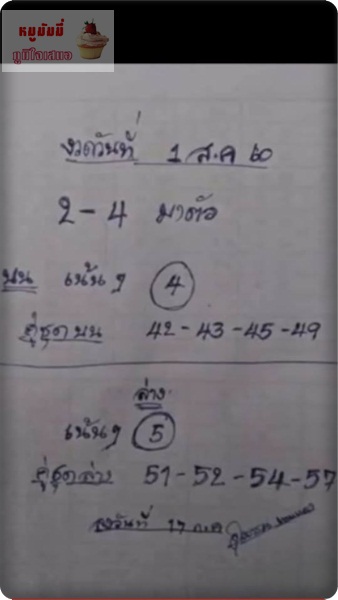 หมูมัมมี่
ภูมิใจเสนอ
งวดวันที่ 1 ส.ค 60
2-4 มาตัว
บน เน้นๆ 4
คู่ชุดบน 42-43-45-49
ล่าง
เน้นๆ 5
คู่ชุดล่าง 51-52-54-57